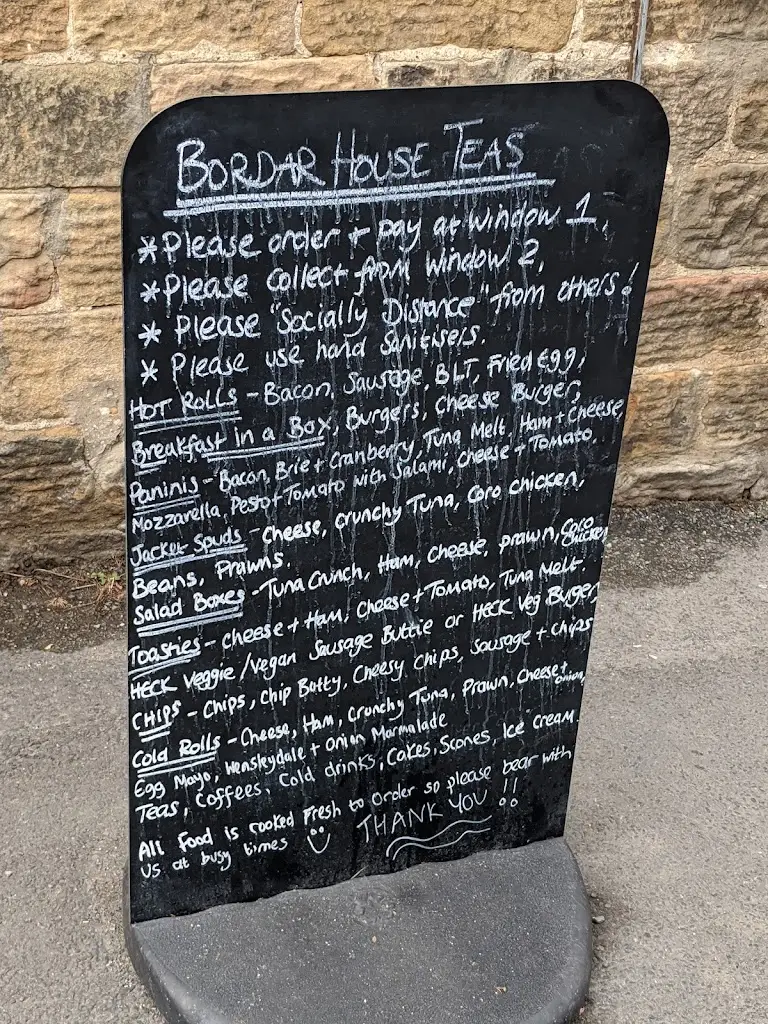 BORDAR HOUSE TEAS
* Please order + pay at window 1.
* Please collect from window 2.
* Please "Socially Distance" from others!
* Please use hand Sanitisers.
HOT ROLLS - Bacon, Sausage, BLT, Fried Egg,
Breakfast in a Box, Burgers, Cheese Burger,
Paninis - Bacon, Brie + Cranberry, Tuna Melt, Ham + Cheese,
Mozzarella, Pesto + Tomato with Salami, Cheese + Tomato,
Jacket Spuds - Cheese, Crunchy Tuna, Coro Chicken,
Beans, Prawns.
Salad Boxes - Tuna Crunch, Ham, Cheese, prawn, Coro Chicken
Toasties - cheese + Ham, Cheese + Tomato, Tuna Melt.
HECK Veggie/Vegan Sausage Buttie or HECK Veg Burger
CHIPS - Chips, Chip Butty, Cheesy Chips, Sausage + Chips
Cold Rolls - Cheese, Ham, Crunchy Tuna, Prawn, Cheese + onion,
Egg Mayo, Wensleydale + Onion Marmalade
Teas, Coffees, Cold drinks, Cakes, Scones, Ice Cream.
All Food is cooked Fresh to order so please bear with
us at busy times THANK YOU !!